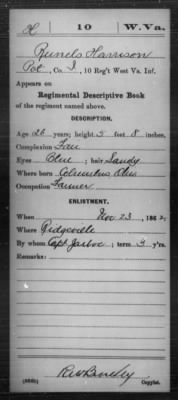 H 10 W.Va.
Runels Harrison
Pvt, Co. I, 10 Reg't West Va. Inf.
Appears on
Regimental Descriptive Book
of the regiment named above.
DESCRIPTION.
Age 28 years; height 5 feet 8 inches.
Complexion Fair
Eyes Blue; hair Sandy
Where born Columbus Ohio
Occupation Farmer
ENLISTMENT.
When Nov 23, 1862.
Where Ridgeville
By whom Capt Jarboe; term 3 y'rs.
Remarks:
Copyist.